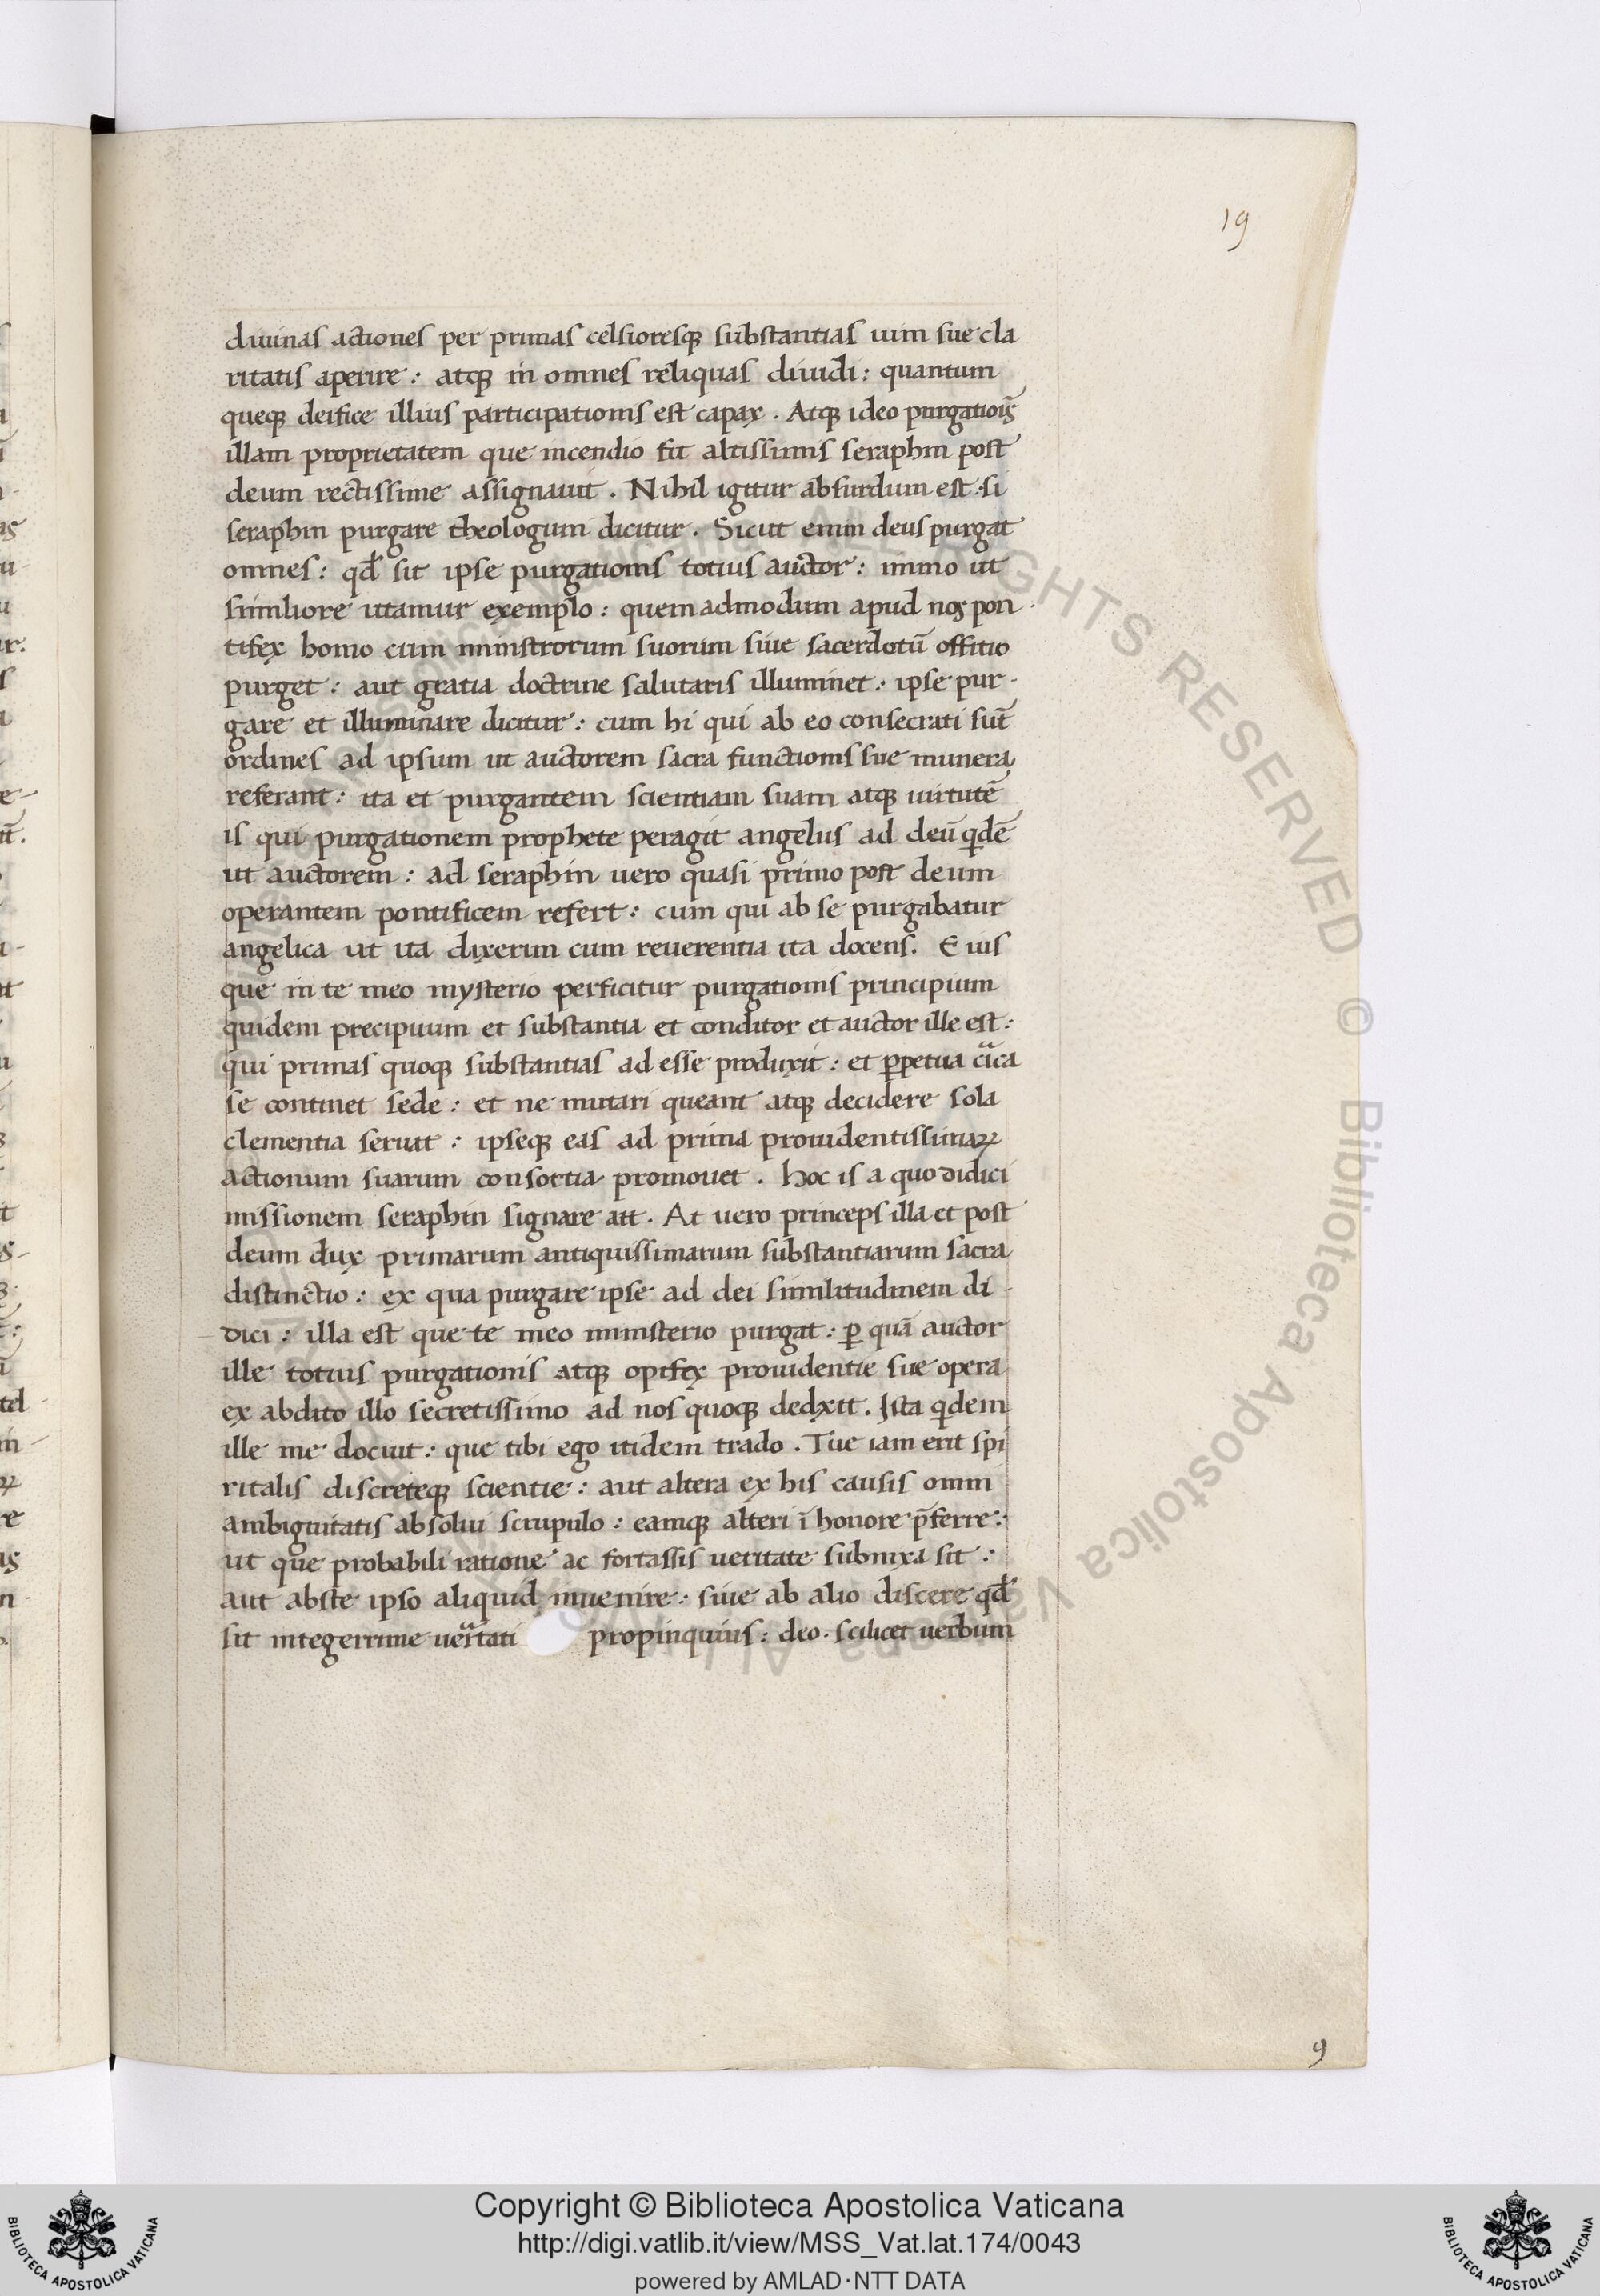 19
diuinas actiones per primas celsioresqꝫ substantias uim sue cla
ritatis aperire: atqꝫ in omnes reliquas diuidi: quantum
queqꝫ deifice illius participationis est capax. Atqꝫ ideo purgatiois̄
illam proprietatem que incendio fit altissimis seraphin post
deum rectissime assignauit. Nihil igitur absurdum est: si
seraphin purgare theologum dicitur. Sicut enim deus purgat
omnes: qd̄ sit ipse purgationis totius auctor: immo ut
similiore utamur exemplo: quemadmodum apud nos pon
tifex homo cum ministrorum suorum siue sacerdotū offitio
purget: aut gratia doctrine salutaris illuminet: ipse pur-
gare et illuminare dicitur: cum hi qui ab eo consecrati sūt
ordines ad ipsum ut auctorem sacra functionis sue munera
referant: ita et purgantem scientiam suam atqꝫ uirtutē
is qui purgationem prophete peragit angelus ad deū qⁱdē
ut auctorem: ad seraphin uero quasi primo post deum
operantem pontificem refert: cum qui ab se purgabatur
angelica ut ita dixerim cum reuerentia ita docens. Eius
que in te meo mysterio perficitur purgationis principium
quidem precipuum et substantia et conditor et auctor ille est:
qui primas quoqꝫ substantias ad esse produxit: et ꝑpetua cⁱca
se continet sede: et ne mutari queant atqꝫ decidere sola
clementia seruat: ipseqꝫ eas ad prima prouidentissimaꝝ
actionum suarum consortia promouet. Hoc is a quo didici
missionem seraphin signare ait. At uero princeps illa et post
deum dux primarum antiquissimarum substantiarum sacra
distinctio: ex qua purgare ipse ad dei similitudinem di-
dici: illa est que te meo ministerio purgat: ꝑ quā auctor
ille totius purgationis atqꝫ opifex prouidentie sue opera
ex abdito illo secretissimo ad nos quoqꝫ dedxit. Ista qⁱdem
ille me docuit: que tibi ego itidem trado. Tue iam erit spi
ritalis discreteqꝫ scientie: aut altera ex his causis omni
ambiguitatis absolui scrupulo: eamqꝫ alteri ī honore p̄ferre:
ut que probabili ratione ac fortassis ueritate subnixa sit:
aut abste ipso aliquid inuenire: siue ab alio discere qd̄
sit integerrime ueritati propinquius: deo scilicet uerbum
9
© Biblioteca Apostolica Vaticana ALL RIGHTS RESERVED
Copyright © Biblioteca Apostolica Vaticana
http://digi.vatlib.it/view/MSS_Vat.lat.174/0043
powered by AMLAD·NTT DATA
BIBLIOTECA APOSTOLICA VATICANA
BIBLIOTECA APOSTOLICA VATICANA